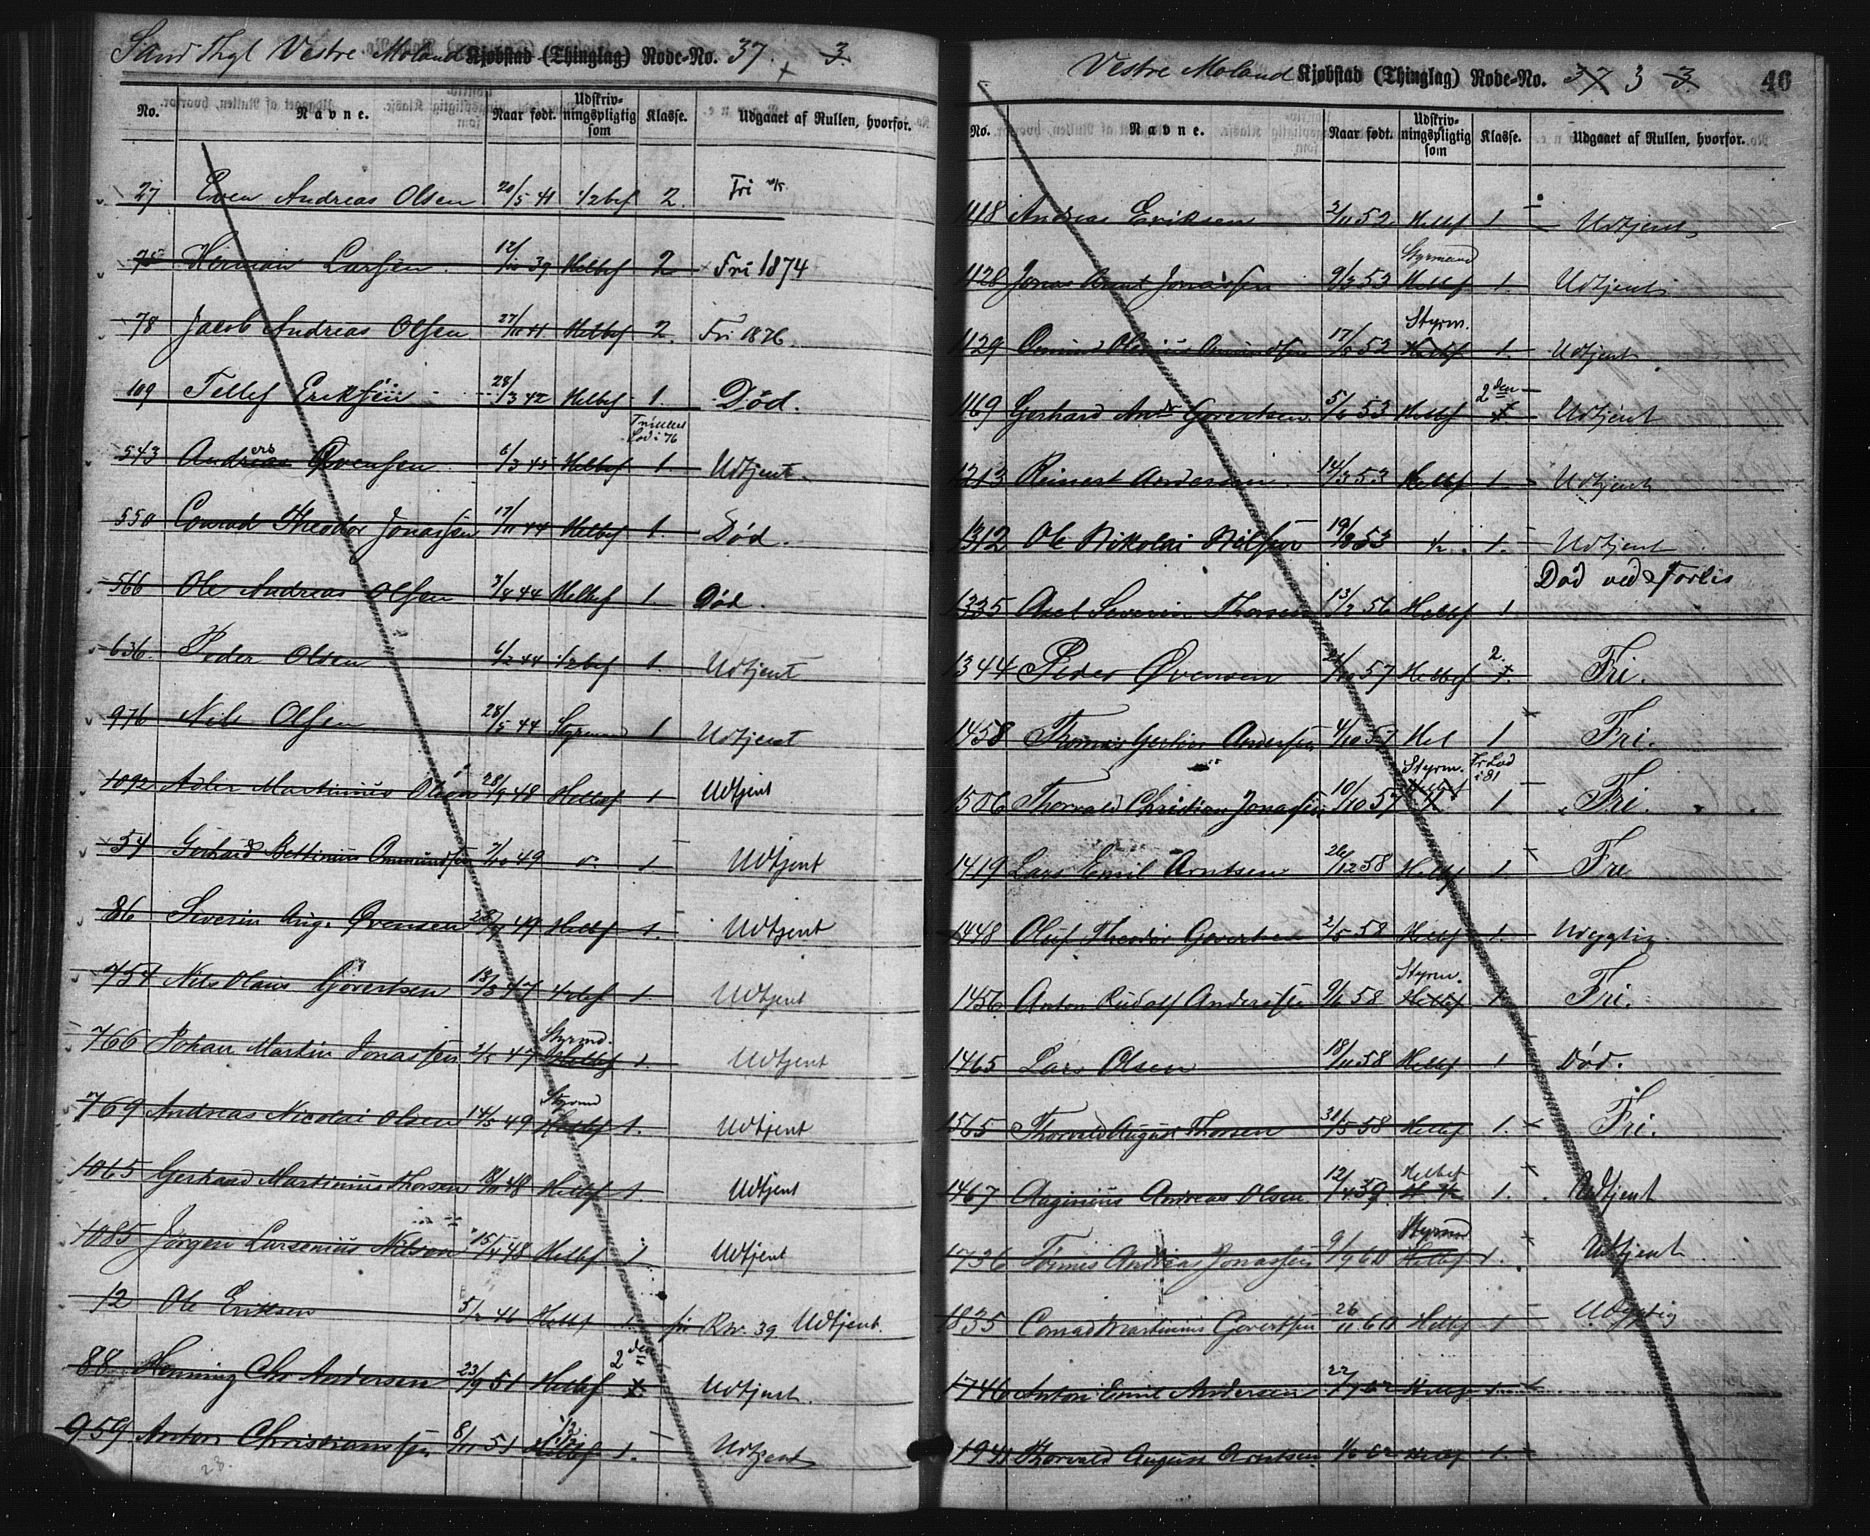 Sand Thgl Vestre Moland Kjøbstad (Thinglag) Rode-No. 37. 3.
No. Navne. Naar født. Udskrivningspligtig som Klasse. Udgaaet af Rullen, hvorfor.
27 Even Andreas Olsen 20/5 41 1/2bef 2. Fri
75 Herman Larsen. 39 Helbef 2 Fri 1874
78 Jacob Andreas Olsen 27/11 41 Helbef 2. Fri 1876.
109 Tellef Eriksen 28/3 42 Helbef 1. Død.
543 Anders Øvensen 6/3 45 Helbef 1. Udtjent.
550 Conrad Theodor Jonassen 17/11 44 Helbef 1. Død.
566 Ole Andreas Olsen 3/8 44 Helbef 1. Død.
636. Peder Olsen 6/2 44 1/2bef 1. Udtjent
976 Nils Olsen 28/5 44 Styrmand 1 Udtjent
1092 Adler Martinius Olsen 28/9 48 Helbef 1 Udtjent
54 Gerhard Bettinius Ommundsen 49 1 Udtjent
86 Severin Aug. Øvensen 49 Helbef 1. Udtjent
754 Nils Olaus Govertsen 18/3 47 1/2bef 1. Udtjent
Styrmd.
766 Johan Martin Jonassen 2/5 47 Helbef 1. Udtjent
Styrmd
769 Andreas Nicolai Olsen 14/5 49 Helbef 1. Udtjent
1065 Gerhard Martinius Thorsen 48 Helbef 1 Udtjent
1085 Jørgen Larsenius Nilsen 15/4 48 Helbef 1 Udtjent
12 Ole Eriksen 5/2 46 Helbef 1. Rn. 39 Udtjent.
88 Henning Chr Andersen 23/9 51 Helbef 2den Udtjent.
959 Anton Christiansen 8/11 51 1/2 Helbef 1. Udtjent
Vestre Moland Kjøbstad (Thinglag) Rode-No. 37 3 3. 46
No. Navne. Naar født. Udskrivningspligtig som Klasse. Udgaaet af Rullen, hvorfor.
1118 Andreas Eriksen 2/11 52 Helbef 1. Udtjent
Styrmand
1128 Jonas Arent Jonassen 9/3 53 Helbef 1. Udtjent
Styrm.
1129 52 Helbef 1. Udtjent
1169 Gerhard Andr Govertsen 5/6 53 Helbef 2den Udtjent
1213 Reinert Andersen 14/3 53 Helbef 1. Udtjent
1312 Ole Nikolai Nilsen 19/8 53 1/2 1. Udtjent
Død ved Forlis
1335 Axel Severin Thorsen 13/2 56 Helbef 1
1344 Peder Øvensen 57 Helbef 2. Fri.
1458 Thomas Andersen 4/10 57 Hel 1 Fri.
Styrm.
1506 Thorvald Christian Jonassen 10/10 57 1. Fri.
1419 Lars Emil Arntsen 26/12 58 Helbef 1. Fri
1448 Oluf Theodor Govertsen 2/5 58 Helbef 1. Udygtig.
Styrm.
1456 Anton Rudolf Andersen 9/6 58 Helbef Fri.
1465 Lars Olsen 18/11 58 Helbef 1 Død.
1565 Thorvald August Thorsen 31/5 58 Helbef 1. Fri.
Helbef
1467 Andreas Olsen 12/4 59 1. Udtjent
Styrmd
1736 Tønnes Andreas Jonassen 9/9 60 Helbef 1. Udtjent
1835 Conrad Martinius Govertsen 26/11 60 Helbef 1 Udygtig
1746 Anton Emil Andersen 22/7 62 Helbef 1
1941 Thorvald August Arntsen 1/6 62 Helbef 1.